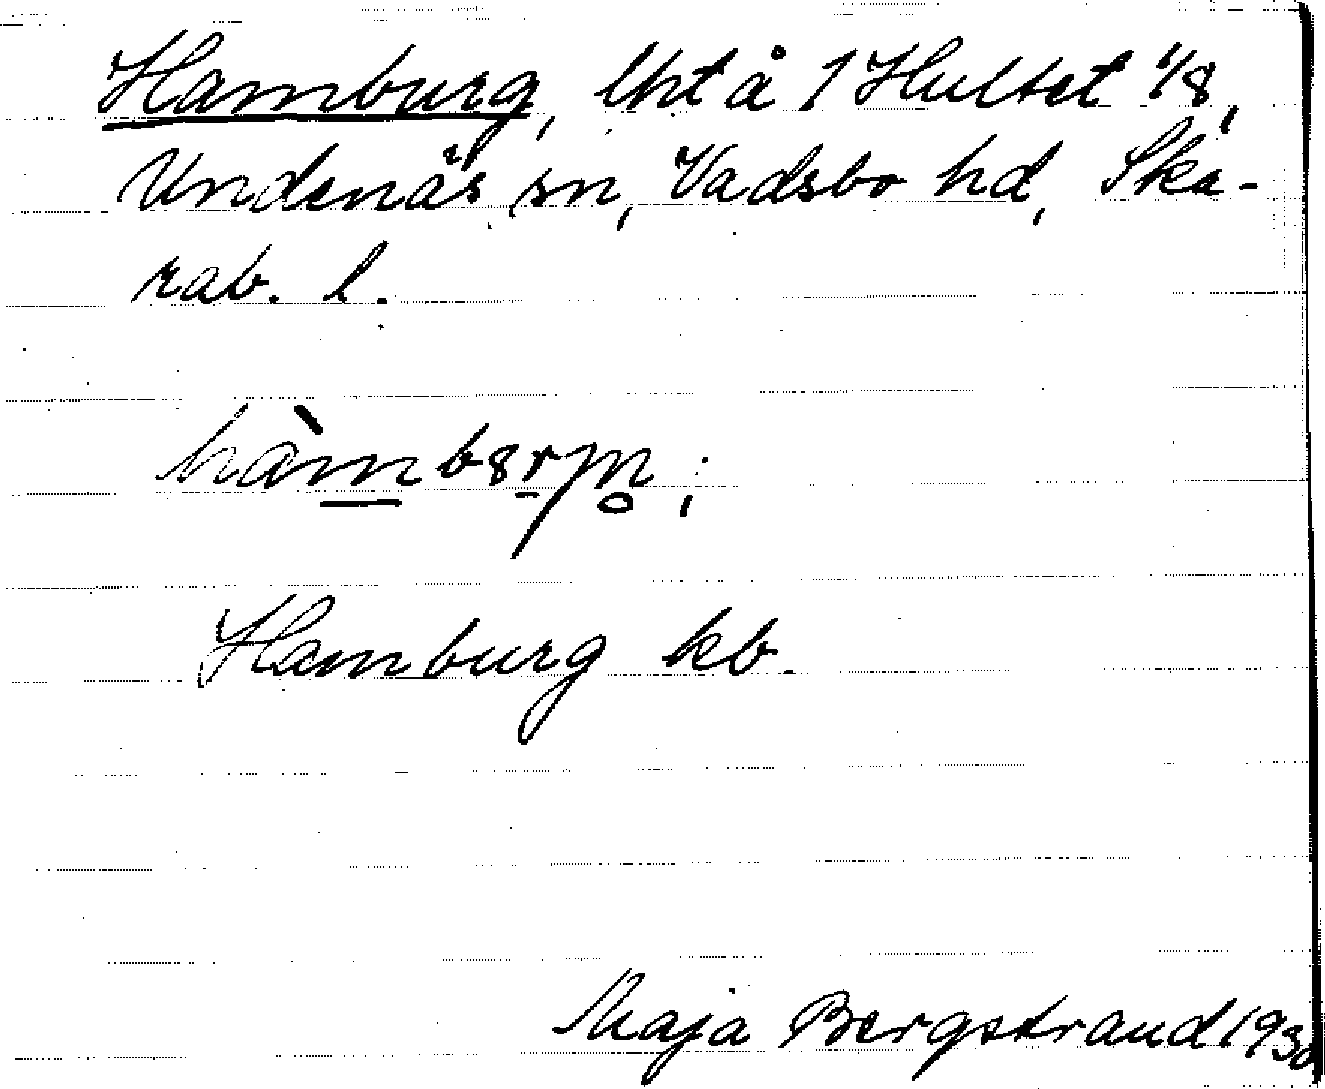 Hamburg, lht å 1 Hultet 1/8,
Undenäs sn, Vadsbo hd, Ska-
rab. l.
Hamburg kb.
Maja Bergstrand 1930